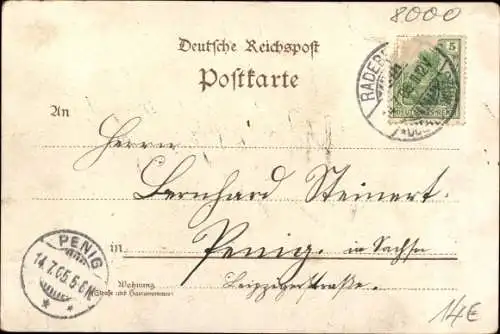 8000
Deutsche Reichspost
Postkarte
5
RADEBE
An
Herrn
Bernhard Steinert
in Penig. in Sachsen
Leipzigerstraße.
Wohnung
(Straße und Hausnummer)
PENIG
14.7.05.5-6N.
* *
14€